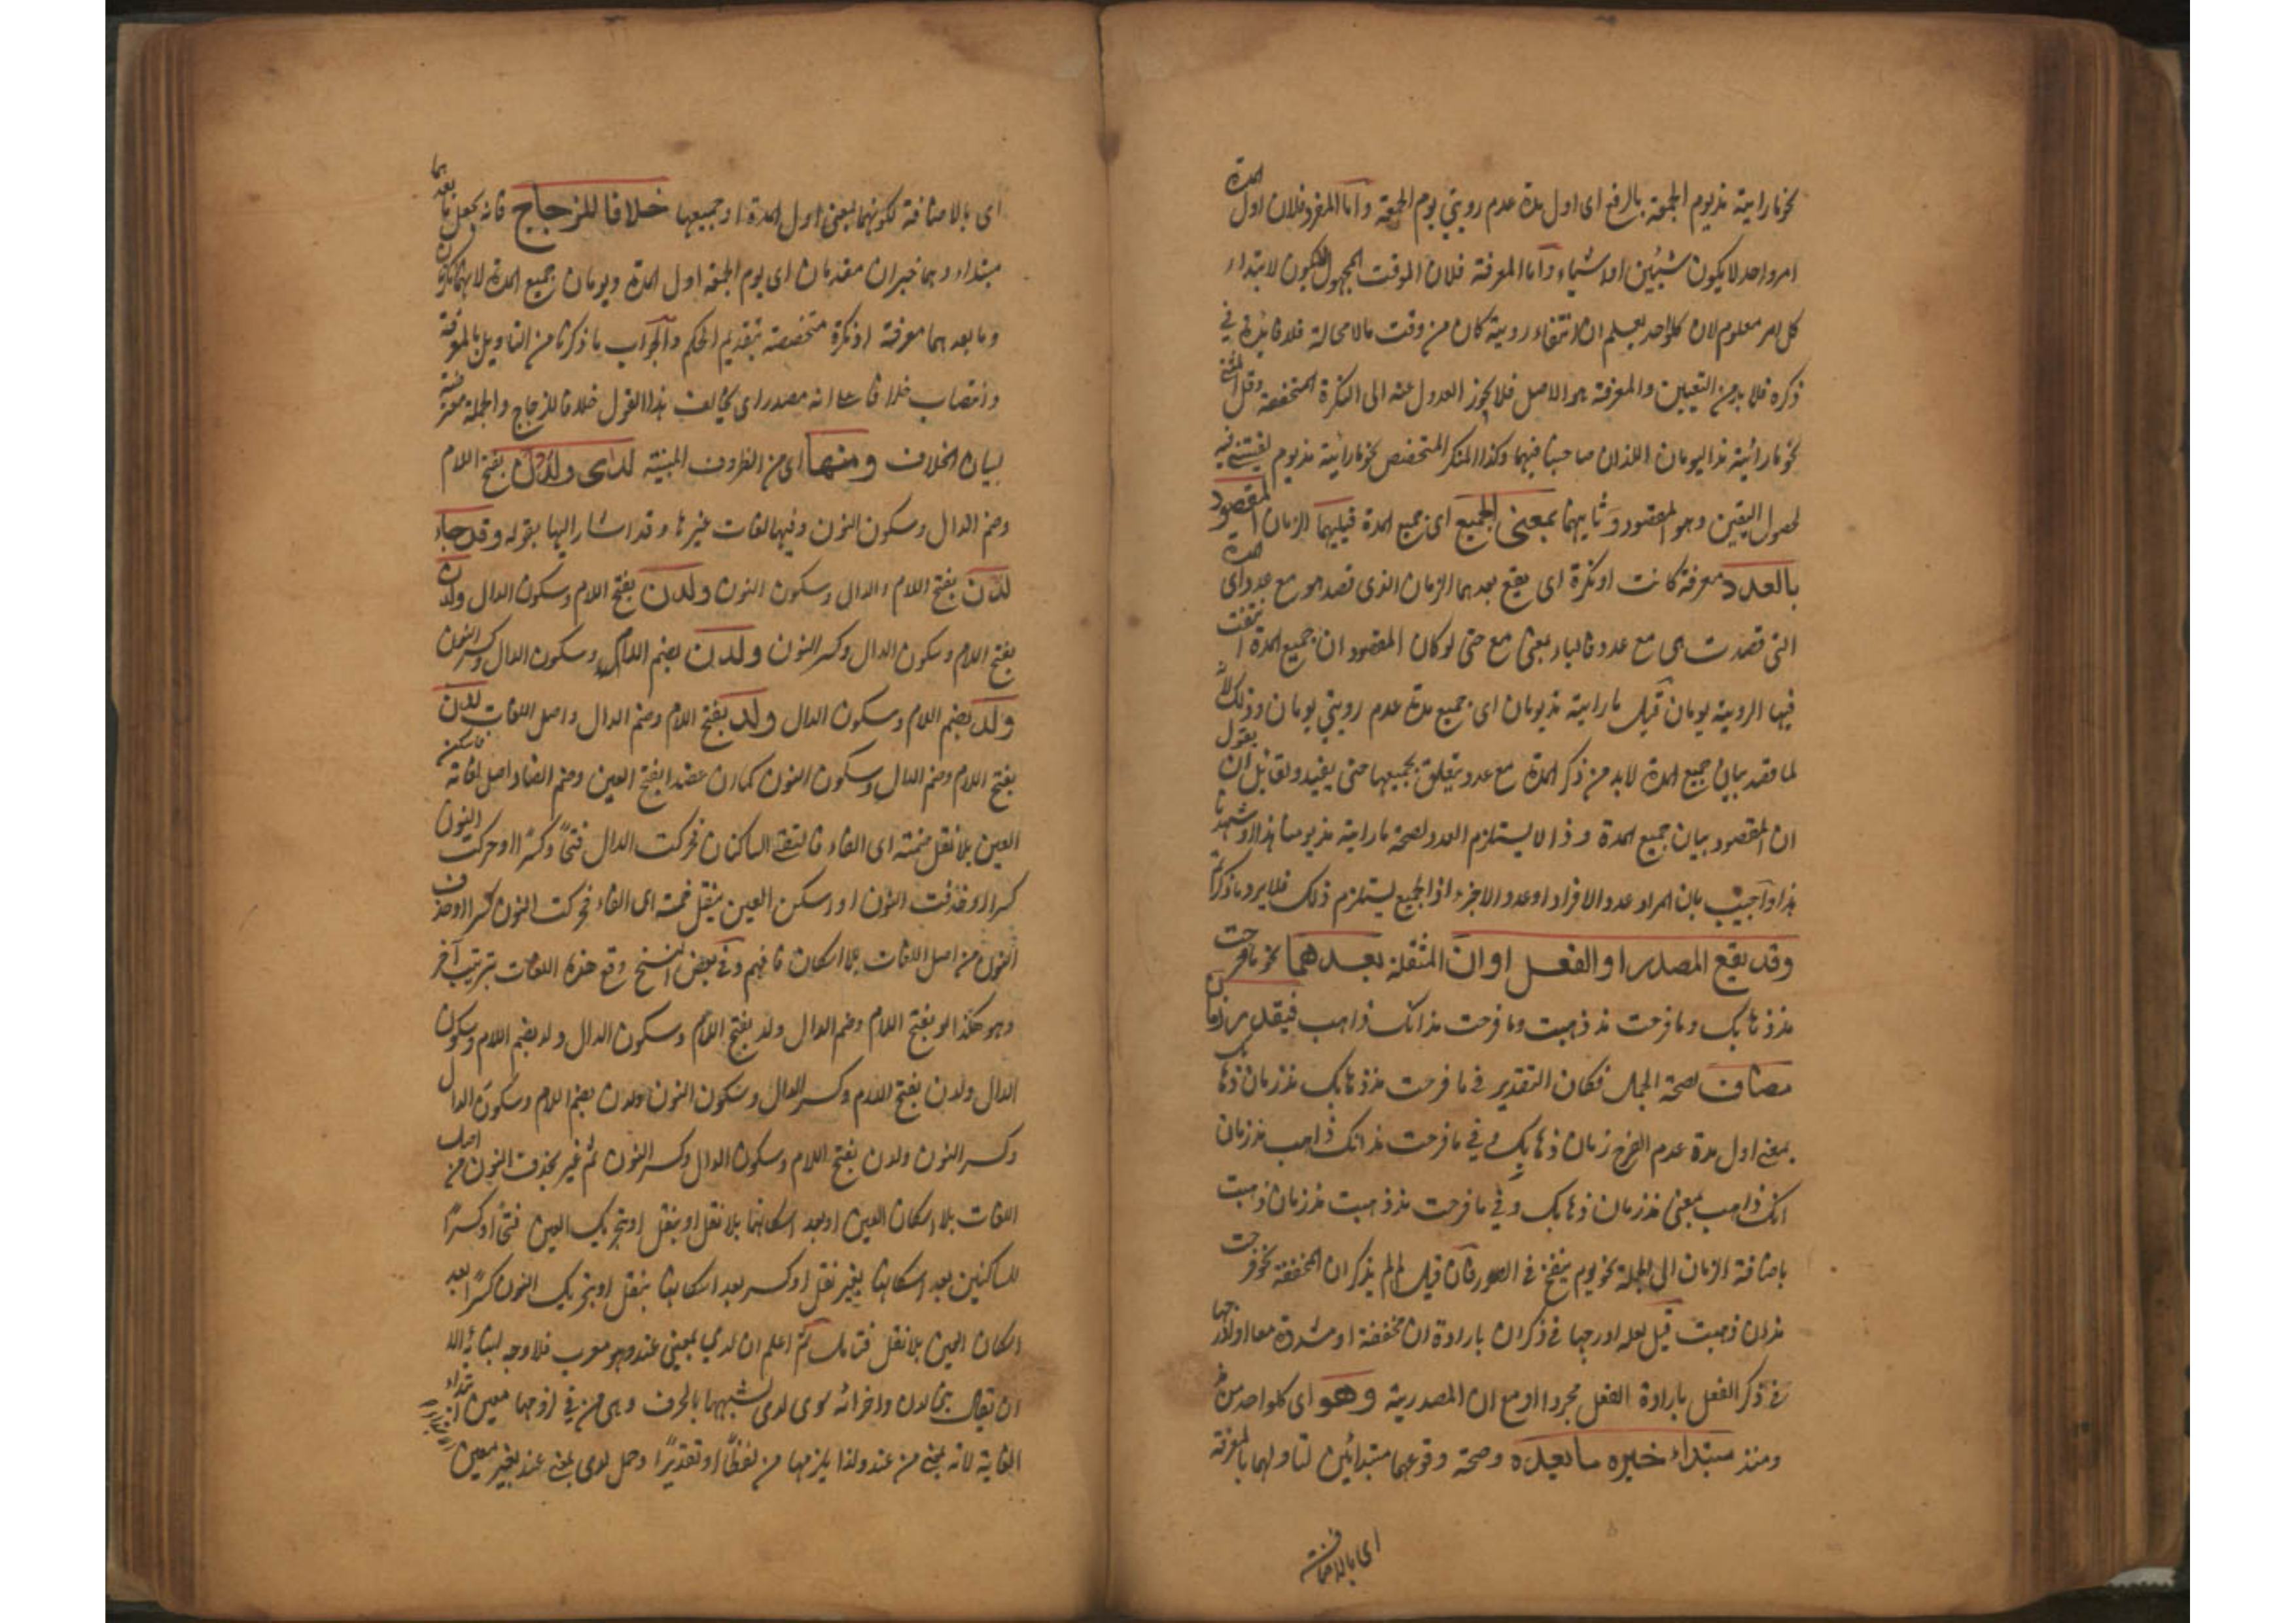 نحو ما رايته مذ يوم الجمعة بالرفع اى اول مدة عدم رويتي يوم الجمعة واما المفرد فلان اول المدة
امر واحد لا يكون شيئين او اشياء واما المعرفة فلان الوقت المجهول لا يكون لابتداء
كل امر معلوم لان كل واحد يعلم ان انتفاء رويته كان من وقت ما لا محالة فلا فائدة في
ذكره فلا بد من التعيين والمعرفة هو الاصل فلا يجوز العدول عنه الى النكرة المتخصصة وقل المثنى
نحو ما رائيته مذ اليومان اللذان صاحبنا فيهما وكذا المنكر المتخصص نحو ما رائيته مذ يوم لقيتني فيه
لحصول اليقين وهو المقصود وثانيهما بمعنى الجميع اى جميع المدة فيليهما الزمان المقصود
بالعدد معرفة كانت او نكرة اى يقع بعدهما الزمان الذى قصد هو مع عدد اى المدة
التى قصدت هى مع عدد فالباء بمعنى مع حتى لو كان المقصود ان جميع المدة انتفت
فيها الروية يومان قيل ما رايته مذ يومان اى جميع مدة عدم رويتي يومان وذلك لانه
لما قصد بيان جميع المدة لا بد من ذكر المدة مع عدد يتعلق بجميعها حتى يفيد ولقائل ان يقول
ان المقصود بيان جميع المدة و ذا لا يستلزم العدد لصحة ما رايته مذ يومنا هذا او شهرنا
هذا واجيب بان المراد عدد الافراد او عدد الاجزء اذ الجميع يستلزم ذلك فلا يرد ما ذكرتم
وقد يقع المصدر او الفعل او ان المثقلة بعدهما نحو ما فرحت
مذ ذهابك وما فرحت مذ ذهبت وما فرحت مذ انك ذاهب فيقدر زمان
مضاف لصحة الحمل فكان التقدير في ما فرحت مذ ذهابك مذ زمان ذهابك
بمعنى اول مدة عدم الفرح زمان ذهابك و في ما فرحت مذ انك ذاهب مذ زمان
انك ذاهب بمعنى مذ زمان ذهابك وفي ما فرحت مذ ذهبت مذ زمان ذهبت
باضافة الزمان الى الجملة نحو يوم ينفخ في الصور فان قيل لم لم يذكر ان المخففة نحو ما فرحت
مذ ان ذهبت قيل لعله ادرجها في ذكر ان بارادة ان مخففة او مشددة معا او ادرجها
في ذكر الفعل بارادة الفعل مجردا او مع ان المصدرية وهو اى كل واحد من مذ
ومنذ مبتداء خبره ما بعده وصحة وقوعهما مبتدائين لتاولهما بالمعرفة
اى بالاضافة
اى بالاضافة لكونهما بمعنى اول المدة او جميعها خلافا للزجاج فانه يجعل ما بعدهما
مبتداء وهما خبران مقدمان اى يوم الجمعة اول المدة ويومان جميع المدة لانهما نكرتان
وما بعدهما معرفة او نكرة متخصصة بتقديم الحكم والجواب ما ذكرنا من التاويل بالمعرفة
وانتصاب خلافا على انه مصدر اى يخالف هذا القول خلافا للزجاج والجملة معترضة
لبيان الخلاف ومنها اى من الظروف المبنية لدى ولدن بفتح اللام
وضم الدال وسكون النون وفيها لغات غيرها وقد اشار اليها بقوله وقد جاء
لدن بفتح اللام والدال وسكون النون ولدن بفتح اللام وسكون الدال ولدن
بفتح اللام وسكون الدال وكسر النون ولدن بضم اللام وسكون الدال وكسر النون
ولد بضم اللام وسكون الدال ولد بفتح اللام وضم الدال واصل اللغات لدن
بفتح اللام وضم الدال وسكون النون كما ان عضدا بفتح العين وضم الضاد اصل لغاته فاسكن
العين بلا نقل ضمته اى الفاء فالتقى الساكنان فحركت الدال فتحًا وكسرًا او حركت النون
كسرا او حذفت النون او اسكن العين بنقل ضمته اى الفاء فحركت النون كسرا او حذف
النون من اصل اللغات بلا اسكان فافهم وفي بعض النسخ وقع هذه اللغات بترتيب آخر
وهو هكذا لد بفتح اللام وضم الدال ولد بفتح اللام وسكون الدال ولد بضم اللام وسكون
الدال ولدن بفتح اللام وكسر الدال وسكون النون ولدن بضم اللام وسكون الدال
وكسر النون ولدن بفتح اللام وسكون الدال وكسر النون ثم غير بحذف النون من اصل
اللغات بلا اسكان العين او بعد اسكانها بلا نقل او بنقل او بتحريك العين فتحًا او كسرًا
للساكنين بعد اسكانها بغير نقل او كسر بعد اسكانها بنقل او بتحريك النون كسرًا بعد
اسكان العين بلا نقل فتامل ثم اعلم ان لدى بمعنى عند وهو معرب فلا وجه لبنائه الا
ان يقال بنى لدن واخواته سوى لدى لشبهها بالحرف وهى من في لزومها معنى ابتداء
الغاية لانه بمعنى من عند ولذا يلزمها من لفظًا او تقديرًا وحمل لدى بمعنى عند بغير معنى